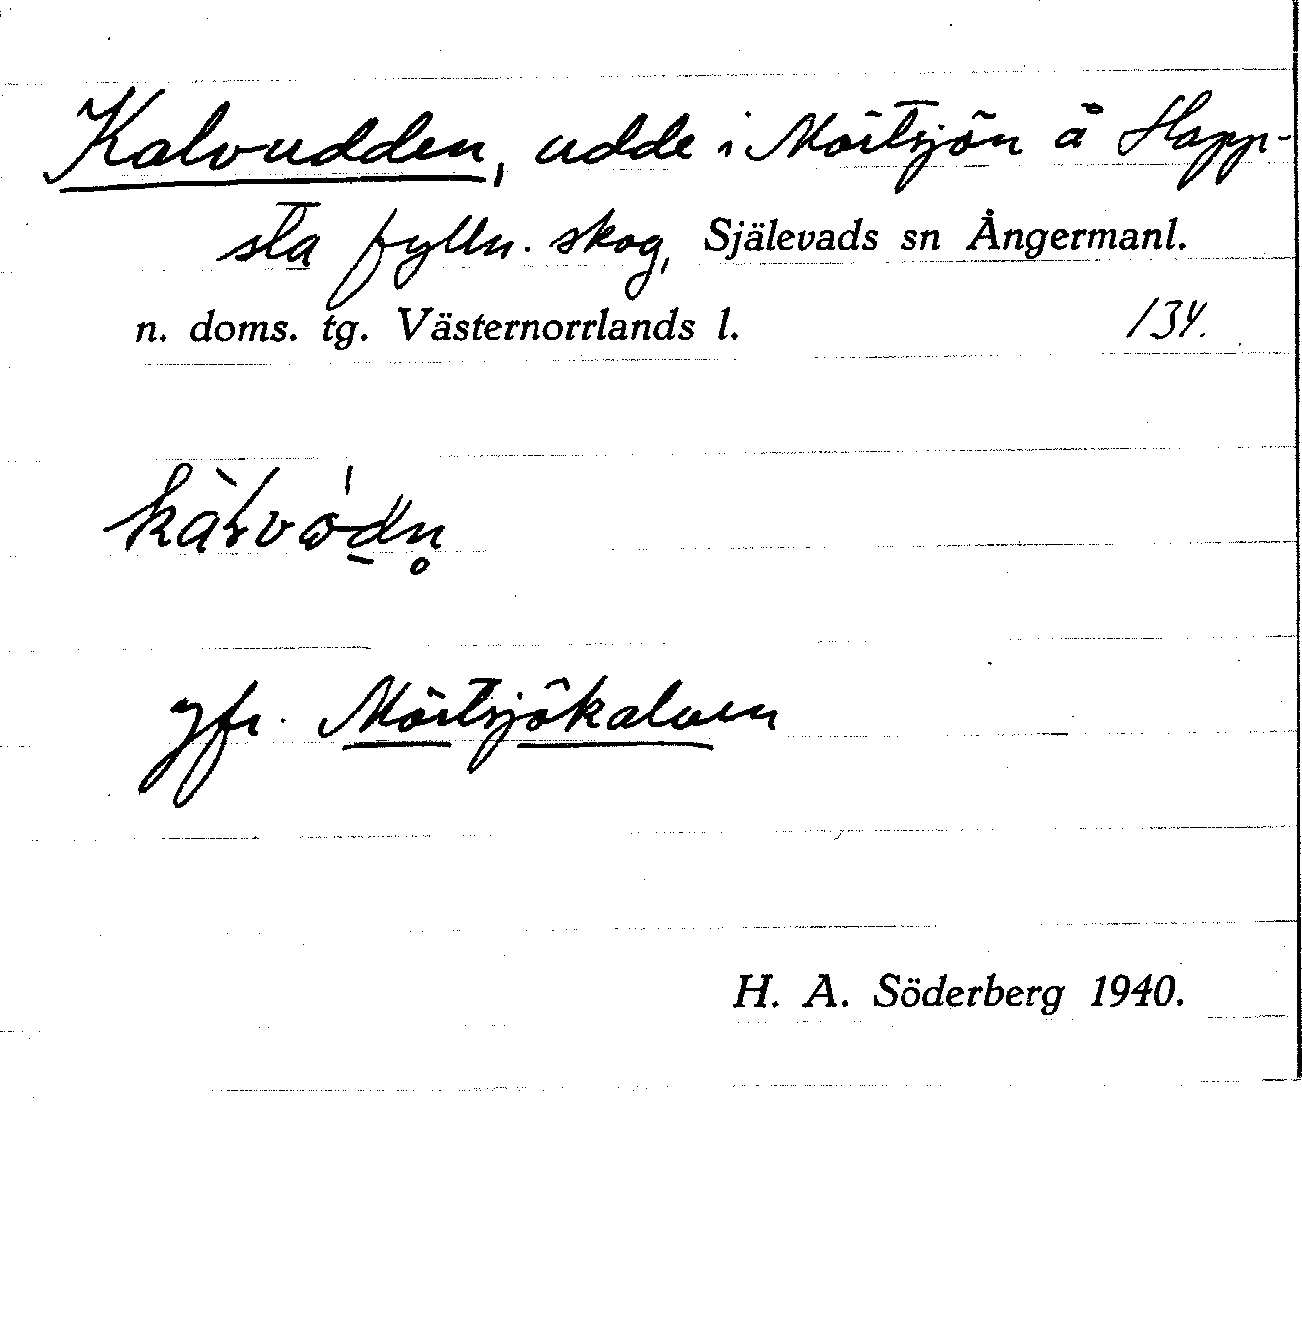 Kalvudden, udde i Mörtsjön å Happ-
sta fylln. skog, Själevads sn Ångermanl.
n. doms. tg. Västernorrlands l. 134.
jfr. Mörtsjökalven
H. A. Söderberg 1940.